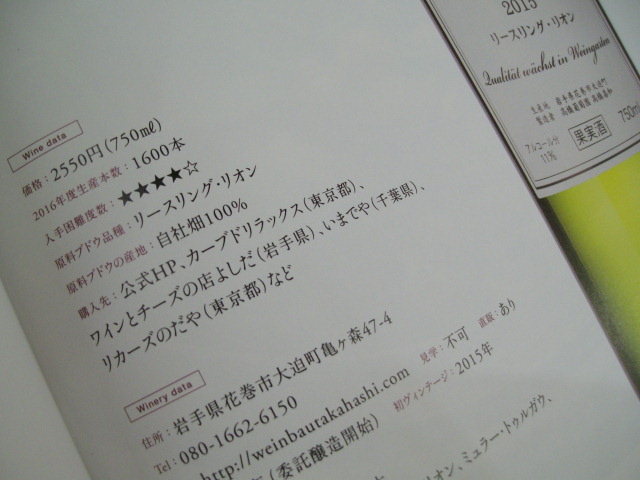 2015
リースリング・リオン
Qualität wächst in Weingarten
生産地 岩手県花巻市大迫町
製造者 高橋葡萄園 高橋喜和
アルコール分
11%
果実酒
750ml
Wine data
価格：2550円（750㎖）
2016年度生産本数：1600本
入手困難度数：★★★★☆
原料ブドウ品種：リースリング・リオン
原料ブドウの産地：自社畑100%
購入先：公式HP、カーブドリラックス（東京都）、
ワインとチーズの店よしだ（岩手県）、いまでや（千葉県）、
リカーズのだや（東京都）など
Winery data
住所：岩手県花巻市大迫町亀ヶ森47-4
Tel：080-1662-6150 見学：不可 直販：あり
http://weinbautakahashi.com 初ヴィンテージ：2015年
（委託醸造開始）
リオン、ミュラー・トゥルガウ、